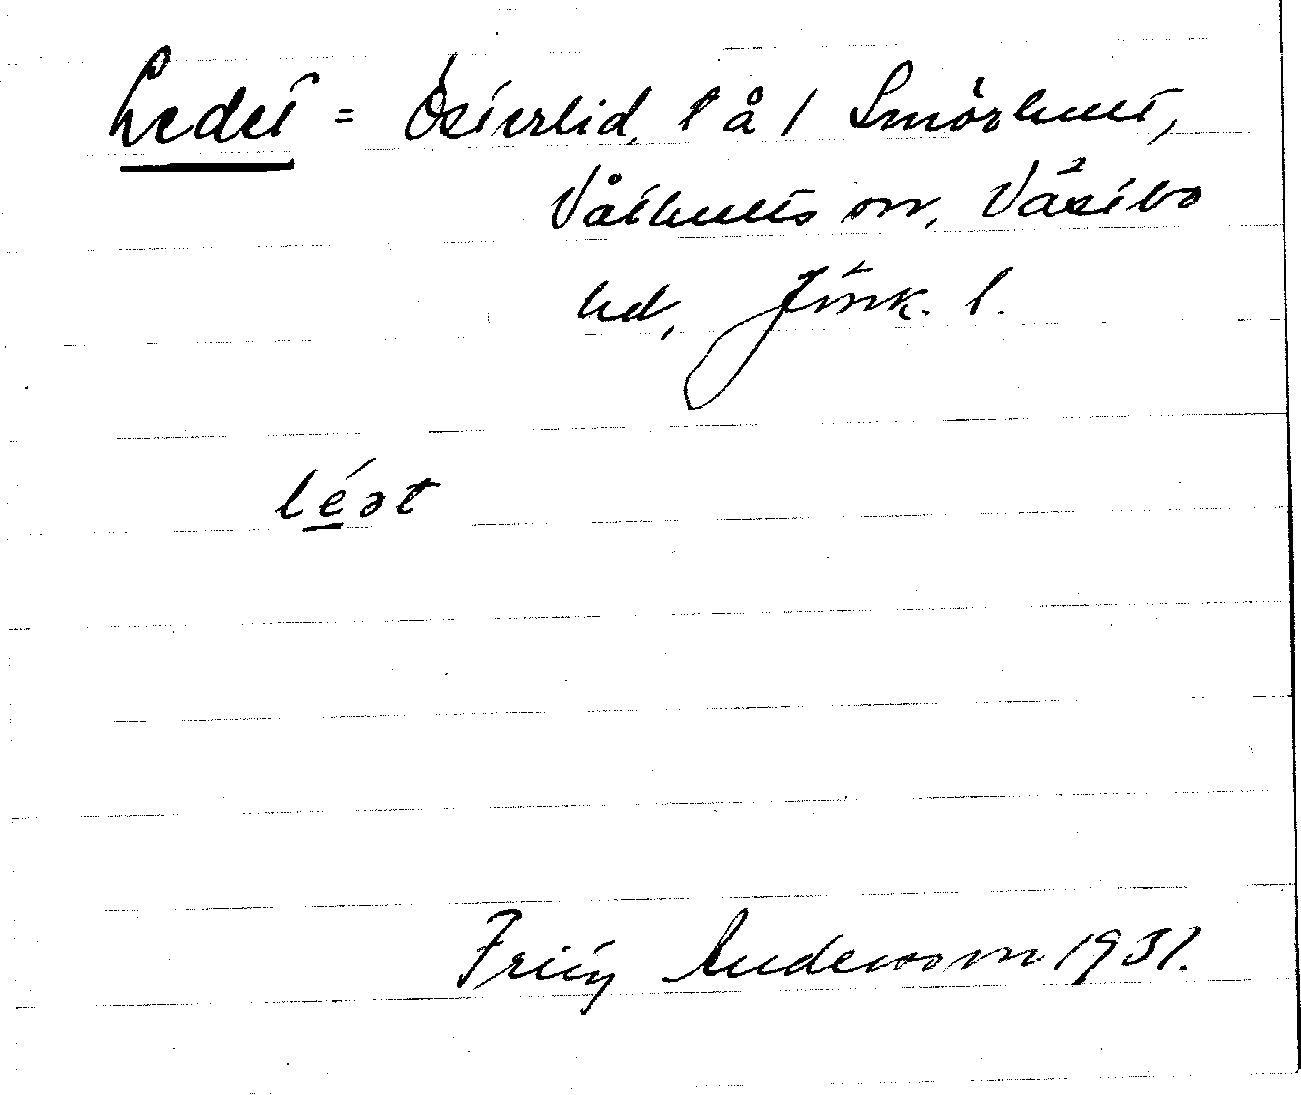 Ledet = Österlid, l å / Smörhult,
Våthults sn, Västbo
hd, Jönk. l.
léət
Frity Anderson 1931.